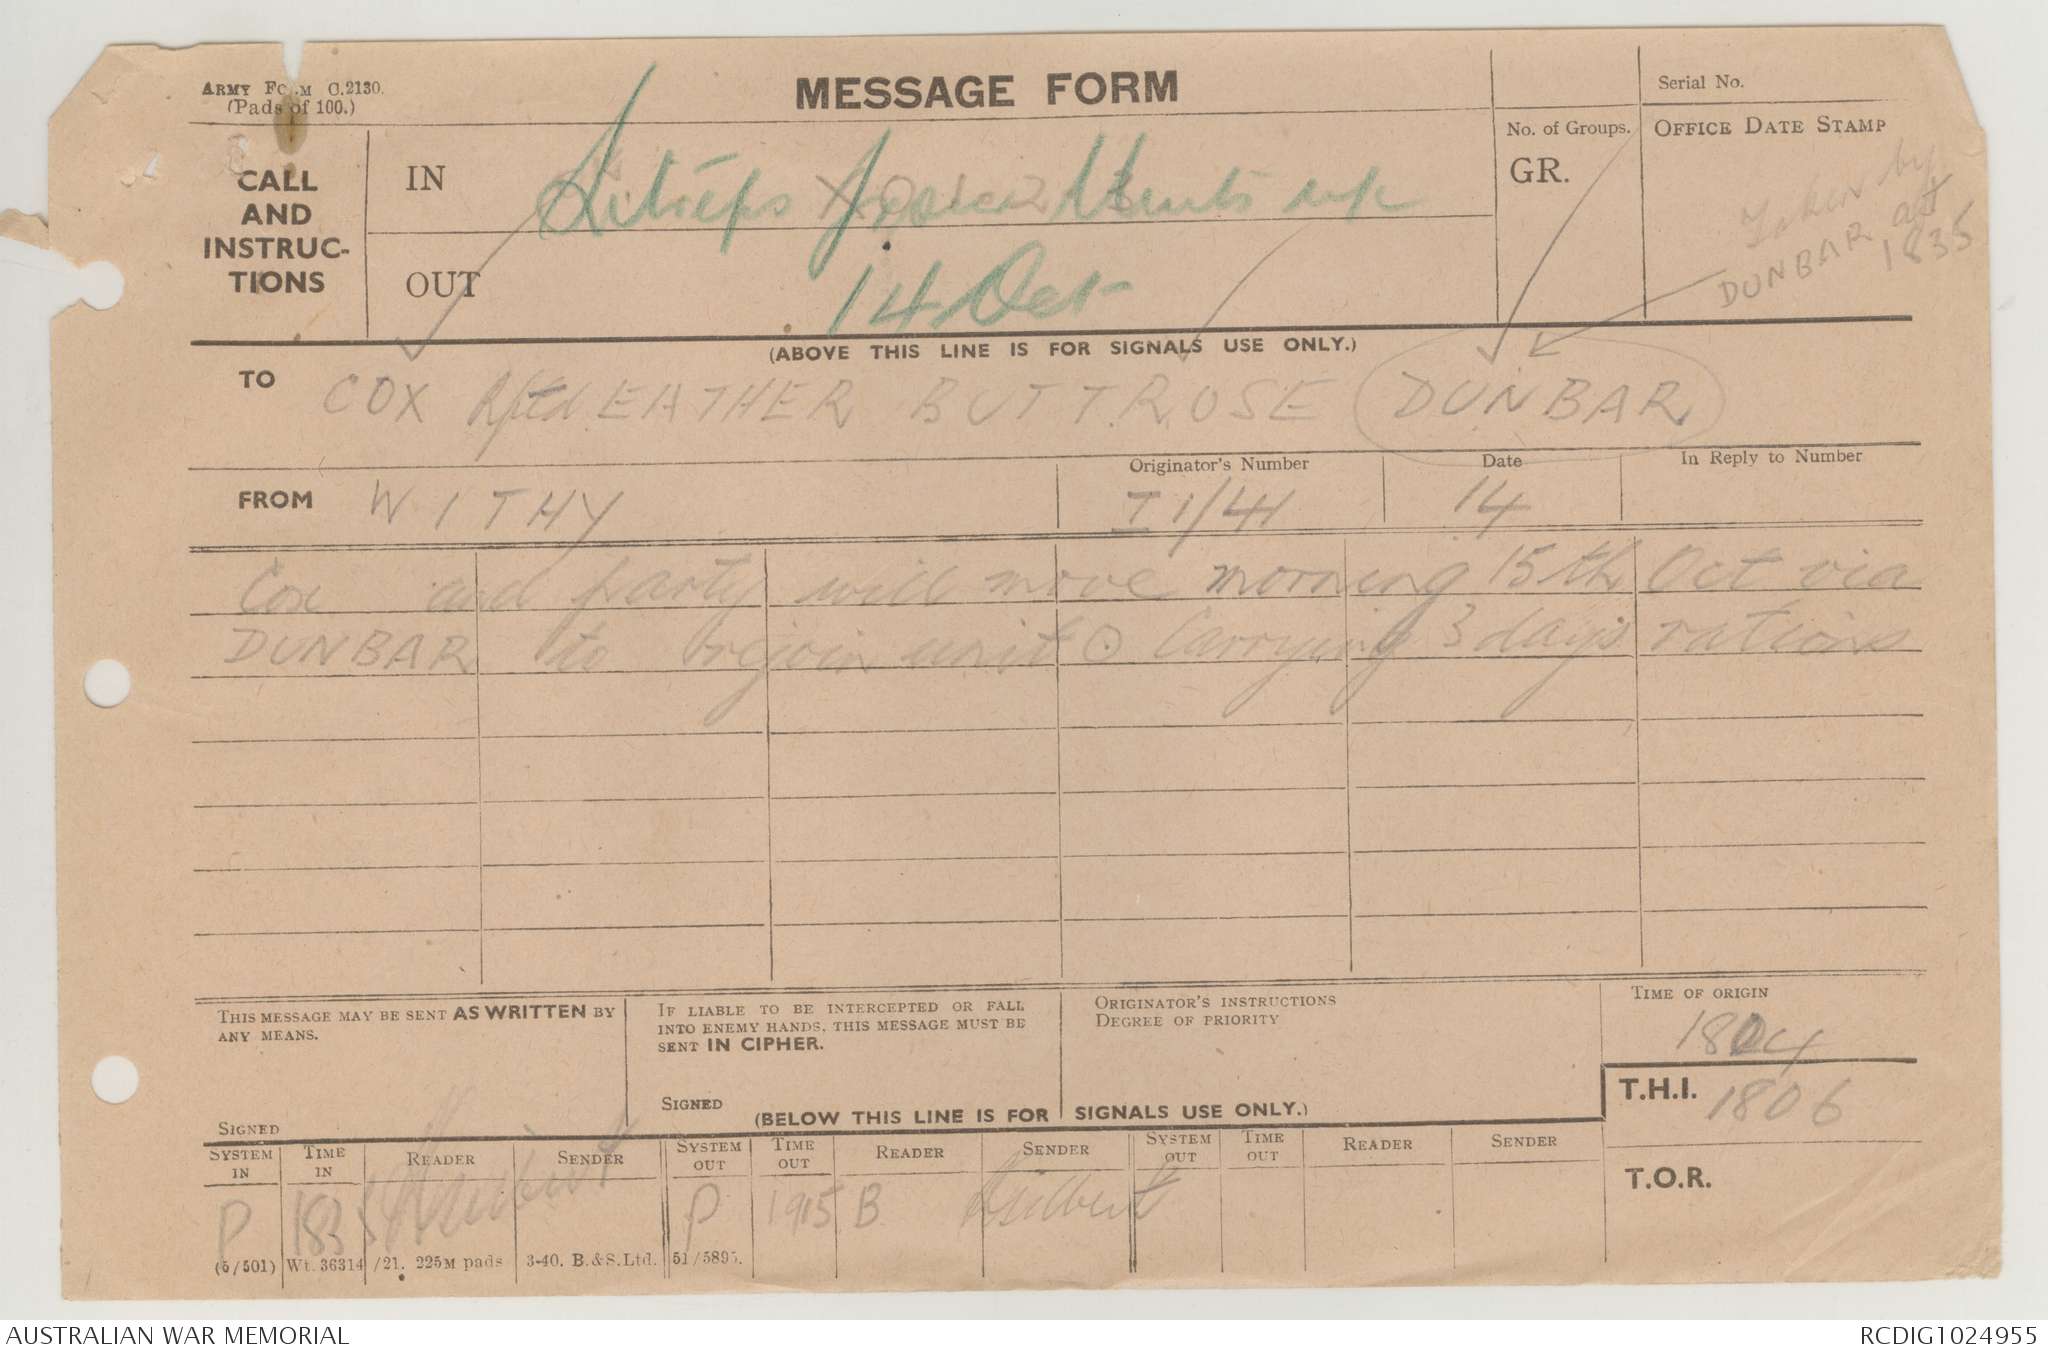 ARMY FORM C.2130.
(Pads of 100.)
MESSAGE FORM
Serial No.
CALL
AND
INSTRUC-
TIONS
IN
OUT
Sitreps
14 Oct
No. of Groups.
GR.
OFFICE DATE STAMP
Taken by
DUNBAR at
1835
(ABOVE THIS LINE IS FOR SIGNALS USE ONLY.)
TO COX Rptd EATHER BUTTROSE DUNBAR
FROM WITHY
Originator's Number
I 1/41
Date
14
In Reply to Number
Cox and party will move morning 15th Oct via
DUNBAR to rejoin unit ⊙ Carrying 3 days rations
THIS MESSAGE MAY BE SENT AS WRITTEN BY
ANY MEANS.
SIGNED
IF LIABLE TO BE INTERCEPTED OR FALL
INTO ENEMY HANDS, THIS MESSAGE MUST BE
SENT IN CIPHER.
SIGNED
ORIGINATOR'S INSTRUCTIONS
DEGREE OF PRIORITY
TIME OF ORIGIN
1804
(BELOW THIS LINE IS FOR SIGNALS USE ONLY.)
T.H.I. 1806
T.O.R.
SYSTEM IN
TIME IN
READER
SENDER
SYSTEM OUT
TIME OUT
READER
SENDER
SYSTEM OUT
TIME OUT
READER
SENDER
P 1835 P 1915 B
(5/501) Wt. 36314/21. 225M pads 3-40. B.&S.Ltd. 51/5895.
AUSTRALIAN WAR MEMORIAL
RCDIG1024955